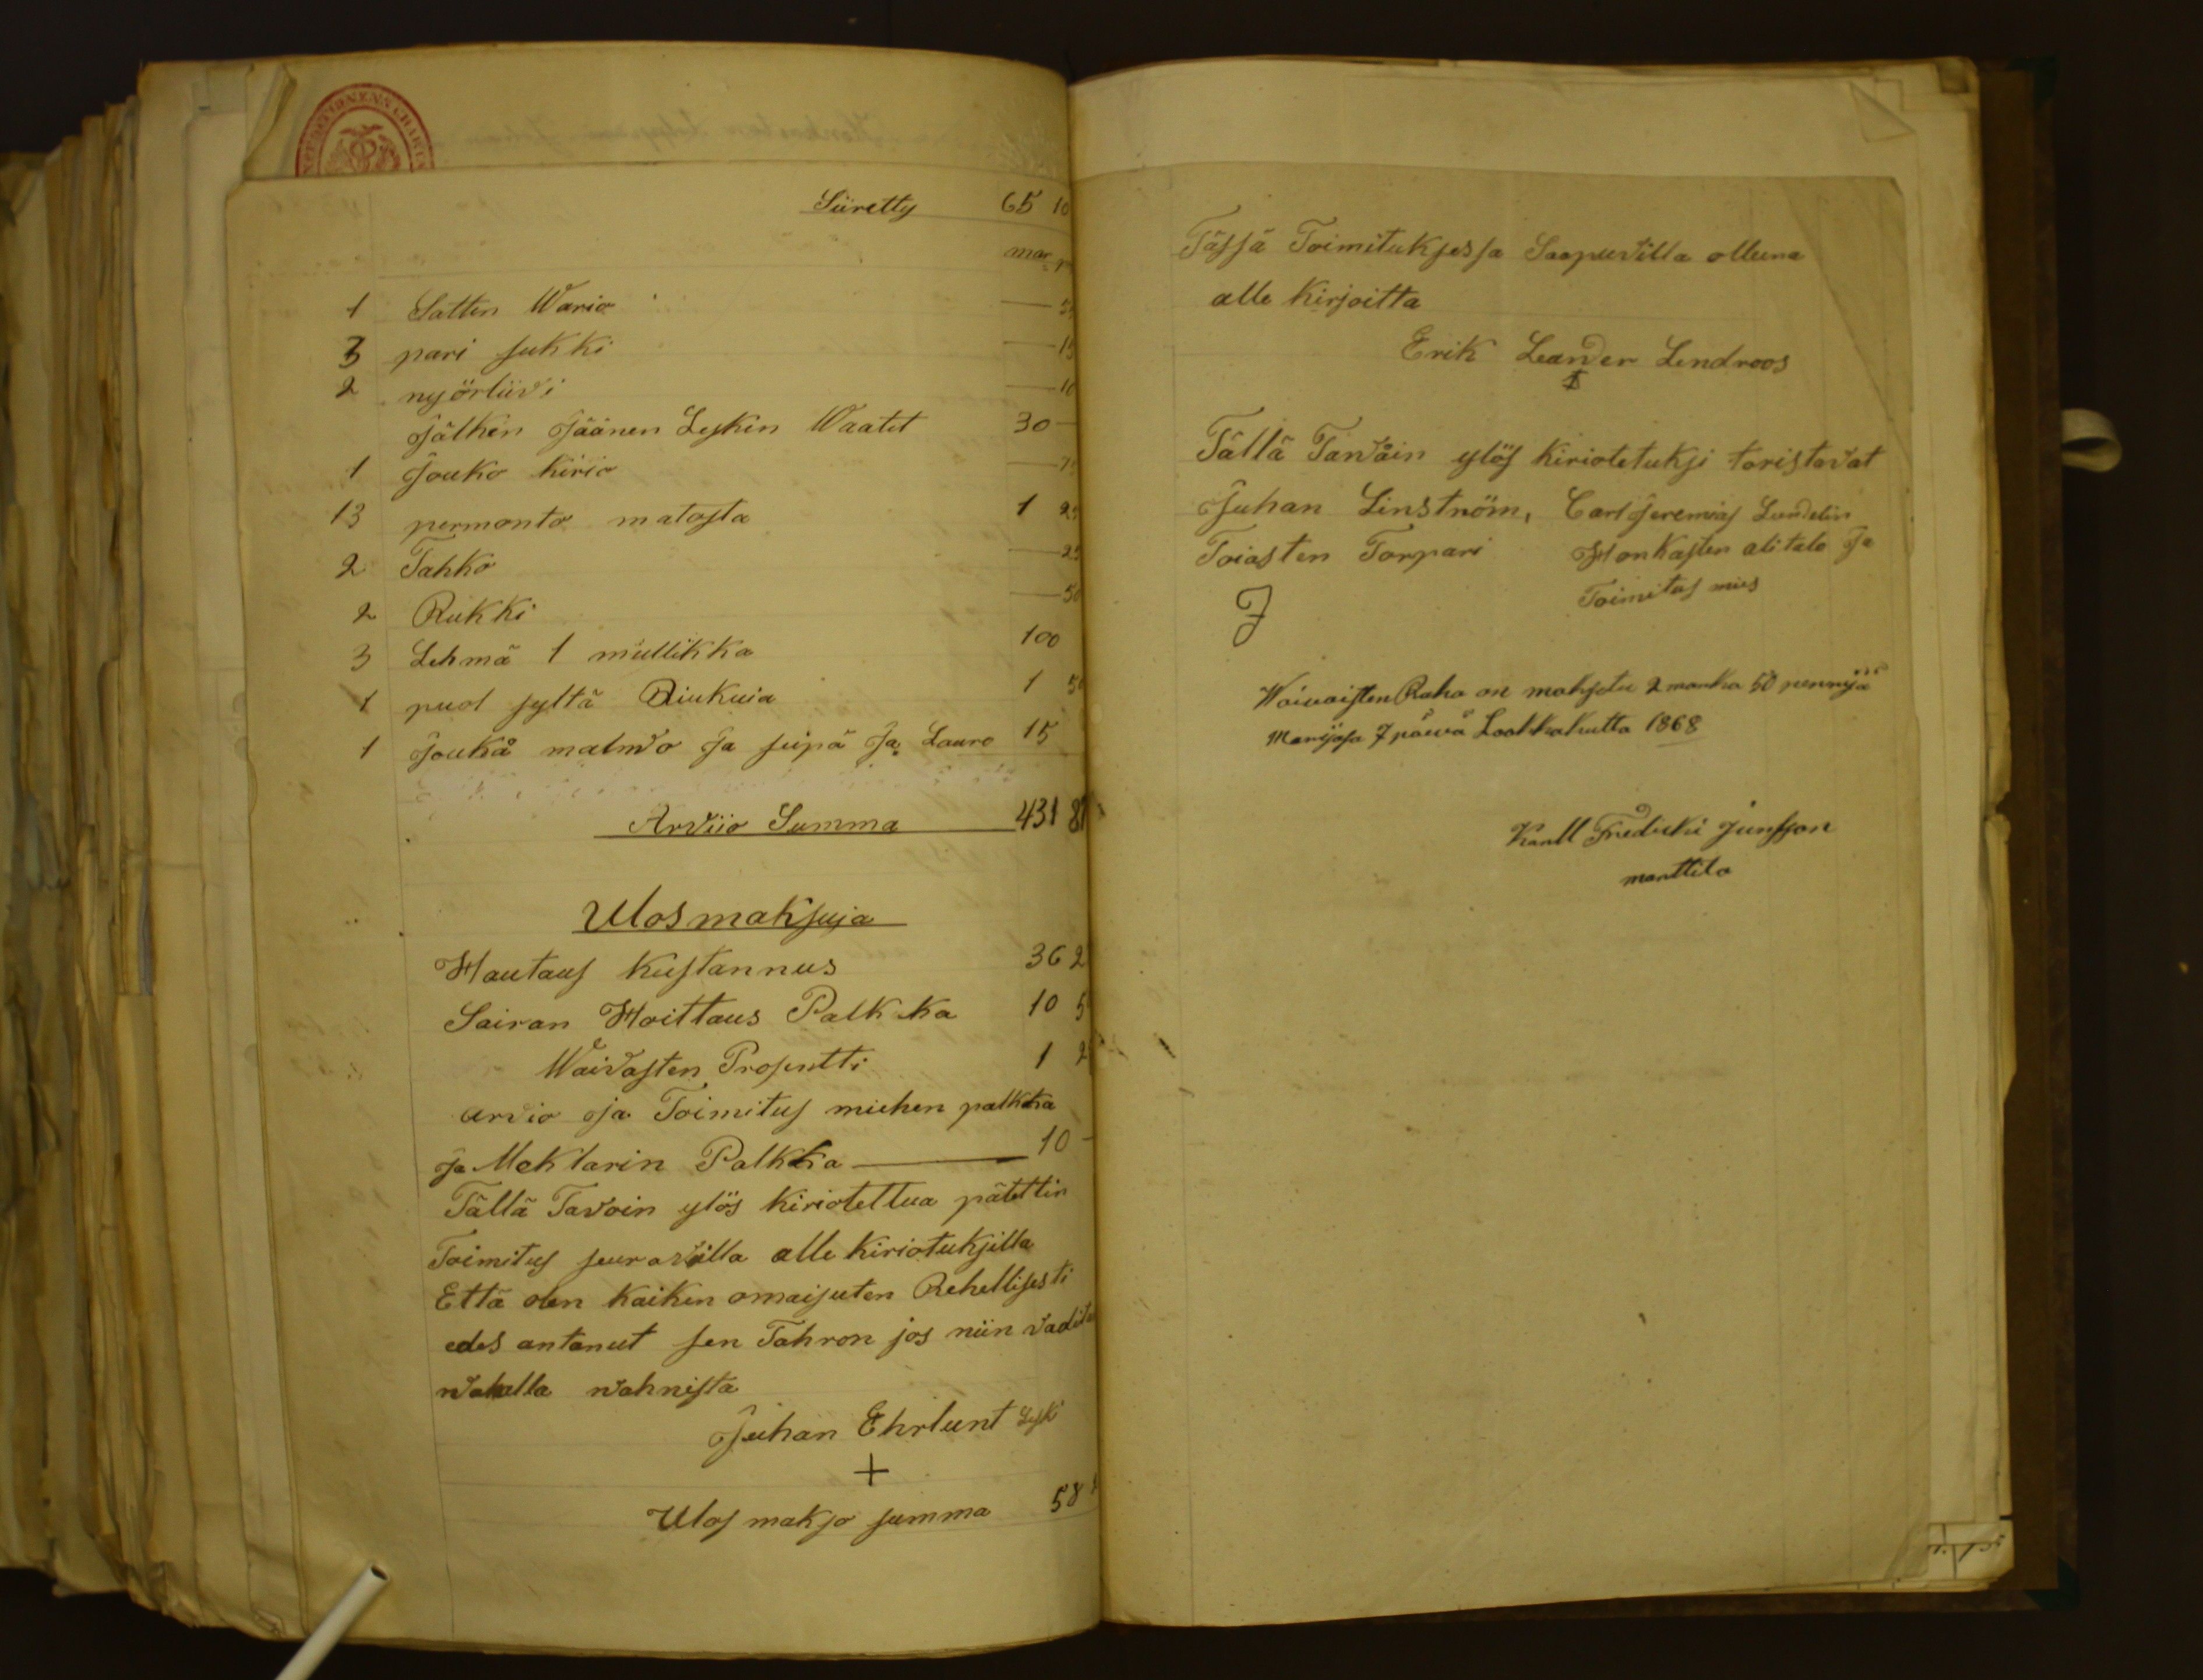 Siiretty 65 10
mar p
1 Satten Wario
3 pari sukki 15
2 nyörliivi 10
Jälken Jäänen Lesken Waatet 30 —
1 Jouko kirio
13 permonto matosta 1 25
2 Tahko 25
2 Rukki 50
3 Lehmä 1 mullikka 100
1 puol syltä Riukuia 1 50
1 Jouko malmo Ja seipä Ja Lauro 15
Arviio Summa 431 8
Ulosmaksuja
Hautaus Kustannus 36 2
Sairan Hoittaus Palkka 10 5
Waivasten Prosentti 1 2
arvio Ja Toimitus miehen palkka
Ja Meklarin Palkka — 10 —
Tällä Tavoin ylös kiriotettua pätettin
Toimitus seuravilla alle kiriotuksilla
Että olen kaiken omaisuten Rehellisesti
edes antanut sen Tahron jos niin vadita
valalla vahvista
Juhan Ehrlunt Leski
+
Ulos makso summa 58
Tässä Toimituksessa Saapuvilla olluna
alle kirjoitta
Erik Leander Lendroos
Tällä Tavoin ylös kiriotetuksi toristavat
Juhan Linström, Carl Jeremias Lundelin
Toiasten Torpari Honkasten alitalo Ja
Toimitus mies
J
Waivaisten Raha on maksetu 2 marka 50 pennijä
Marijasa 7 päivä Loakkakutta 1868
Karll Fredriki Junsson
marttila